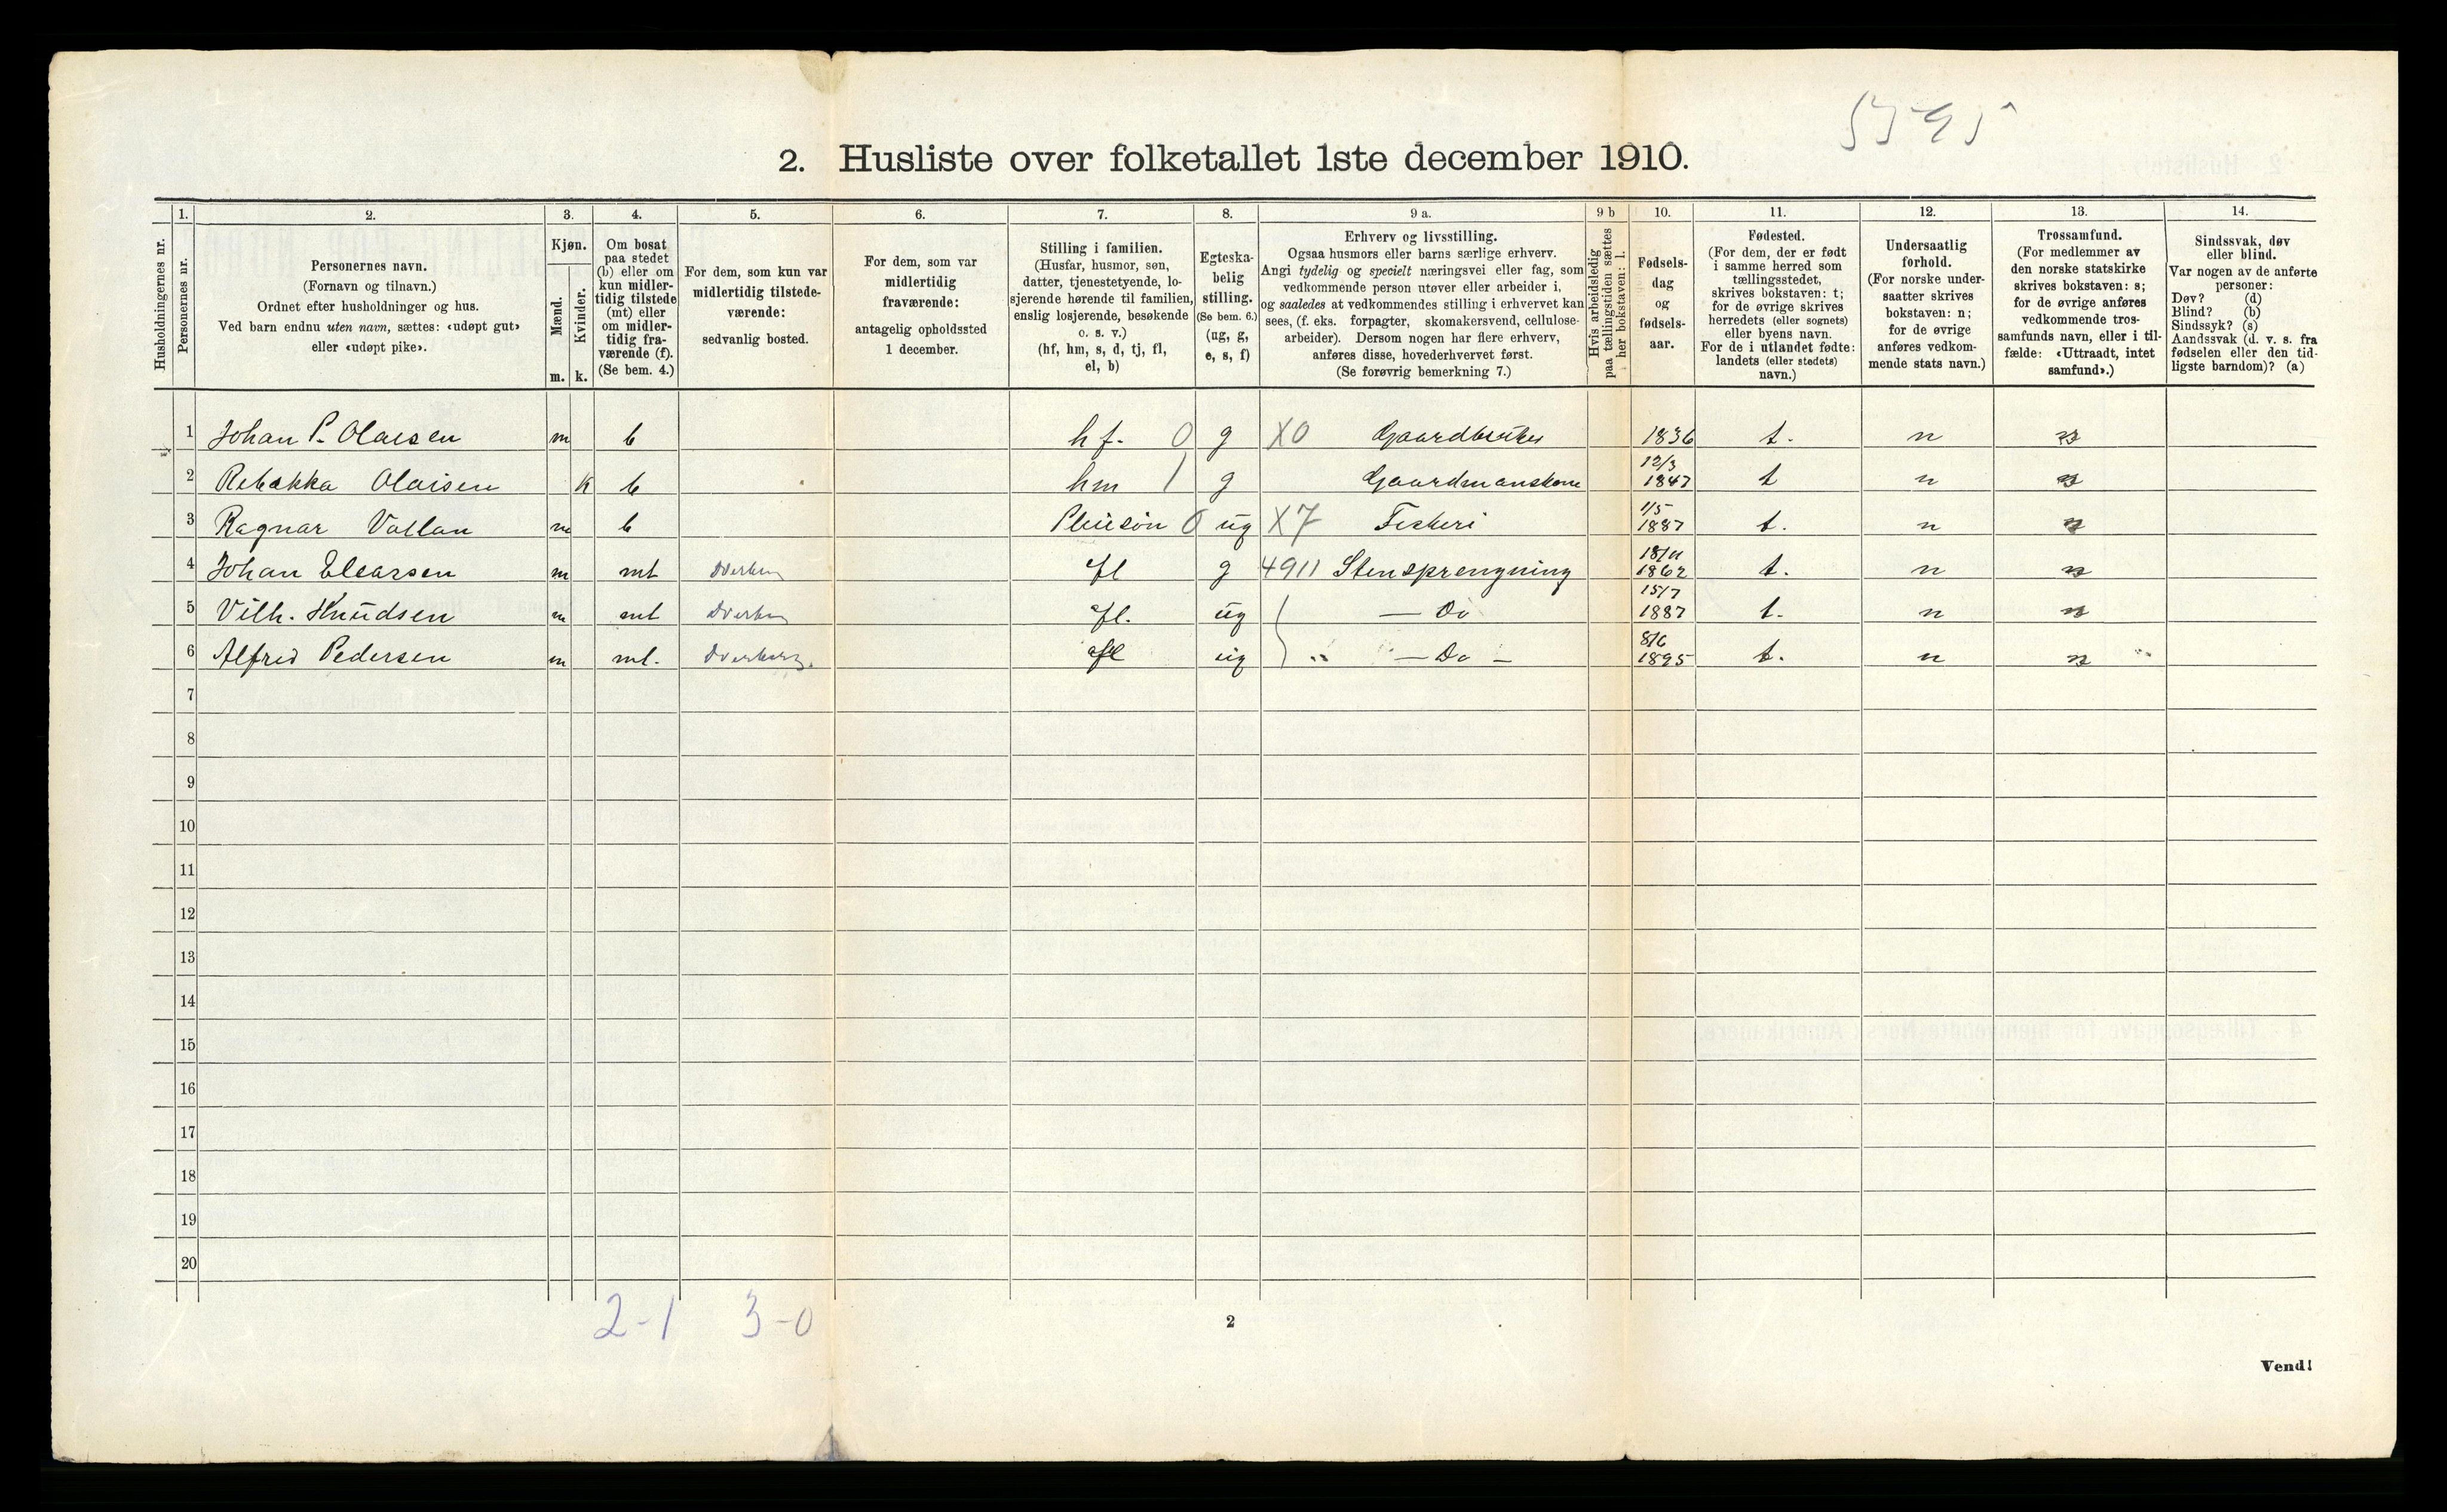 5595
2. Husliste over folketallet 1ste december 1910.
Husholdningernes nr.
1.
Personernes nr.
2.
Personernes navn.
(Fornavn og tilnavn.)
Ordnet efter husholdninger og hus.
Ved barn endnu uten navn, sættes: «udøpt gut»
eller «udøpt pike».
3.
Kjøn.
Mænd.
Kvinder.
m. k.
4.
Om bosat
paa stedet
(b) eller om
kun midler-
tidig tilstede
(mt) eller
om midler-
tidig fra-
værende (f).
(Se bem. 4.)
5.
For dem, som kun var
midlertidig tilstede-
værende:
sedvanlig bosted.
6.
For dem, som var
midlertidig
fraværende:
antagelig opholdssted
1 december.
7.
Stilling i familien.
(Husfar, husmor, søn,
datter, tjenestetyende, lo-
sjerende hørende til familien,
enslig losjerende, besøkende
o. s. v.)
(hf, hm, s, d, tj, fl,
el, b)
8.
Egteska-
belig
stilling.
(Se bem. 6.)
(ug, g,
e, s, f)
9 a.
Erhverv og livsstilling.
Ogsaa husmors eller barns særlige erhverv.
Angi tydelig og specielt næringsvei eller fag, som
vedkommende person utøver eller arbeider i,
og saaledes at vedkommendes stilling i erhvervet kan
sees, (f. eks. forpagter, skomakersvend, cellulose-
arbeider). Dersom nogen har flere erhverv,
anføres disse, hovederhvervet først.
(Se forøvrig bemerkning 7.)
9 b
Hvis arbeidsledig
paa tællingstiden sættes
her bokstaven: l.
10.
Fødsels-
dag
og
fødsels-
aar.
11.
Fødested.
(For dem, der er født
i samme herred som
tællingsstedet,
skrives bokstaven: t;
for de øvrige skrives
herredets (eller sognets)
eller byens navn.
For de i utlandet fødte:
landets (eller stedets)
navn.)
12.
Undersaatlig
forhold.
(For norske under-
saatter skrives
bokstaven: n;
for de øvrige
anføres vedkom-
mende stats navn.)
13.
Trossamfund.
(For medlemmer av
den norske statskirke
skrives bokstaven: s;
for de øvrige anføres
vedkommende tros-
samfunds navn, eller i til-
fælde: «Uttraadt, intet
samfund».)
14.
Sindssvak, døv
eller blind.
Var nogen av de anførte
personer:
Døv? (d)
Blind? (b)
Sindssyk? (s)
Aandssvak (d. v. s. fra
fødselen eller den tid-
ligste barndom)? (a)
1 Johan P. Olaisen m b hf. 0 g X0 Gaardbruker 1836 t. n
2 Rebekka Olaisen k b hm 1 g Gaardmanskone 12/3 1847 t n
3 Ragnar Vollan m b Pleiesøn 0 ug X7 Fiskeri 1/5 1887 t. n
4 Johan m mt fl g 4911 Stensprengning 18/11 1862 t. n
5 Vilh. Knudsen m mt fl. ug — Do 15/7 1887 t. n
6 Alfred Pedersen m mt. Dverberg. fl ug " — Do — 8/6 1895 t. n
7
8
9
10
11
12
13
14
15
16
17
18
19
20
2-1 3-0
2
Vend!